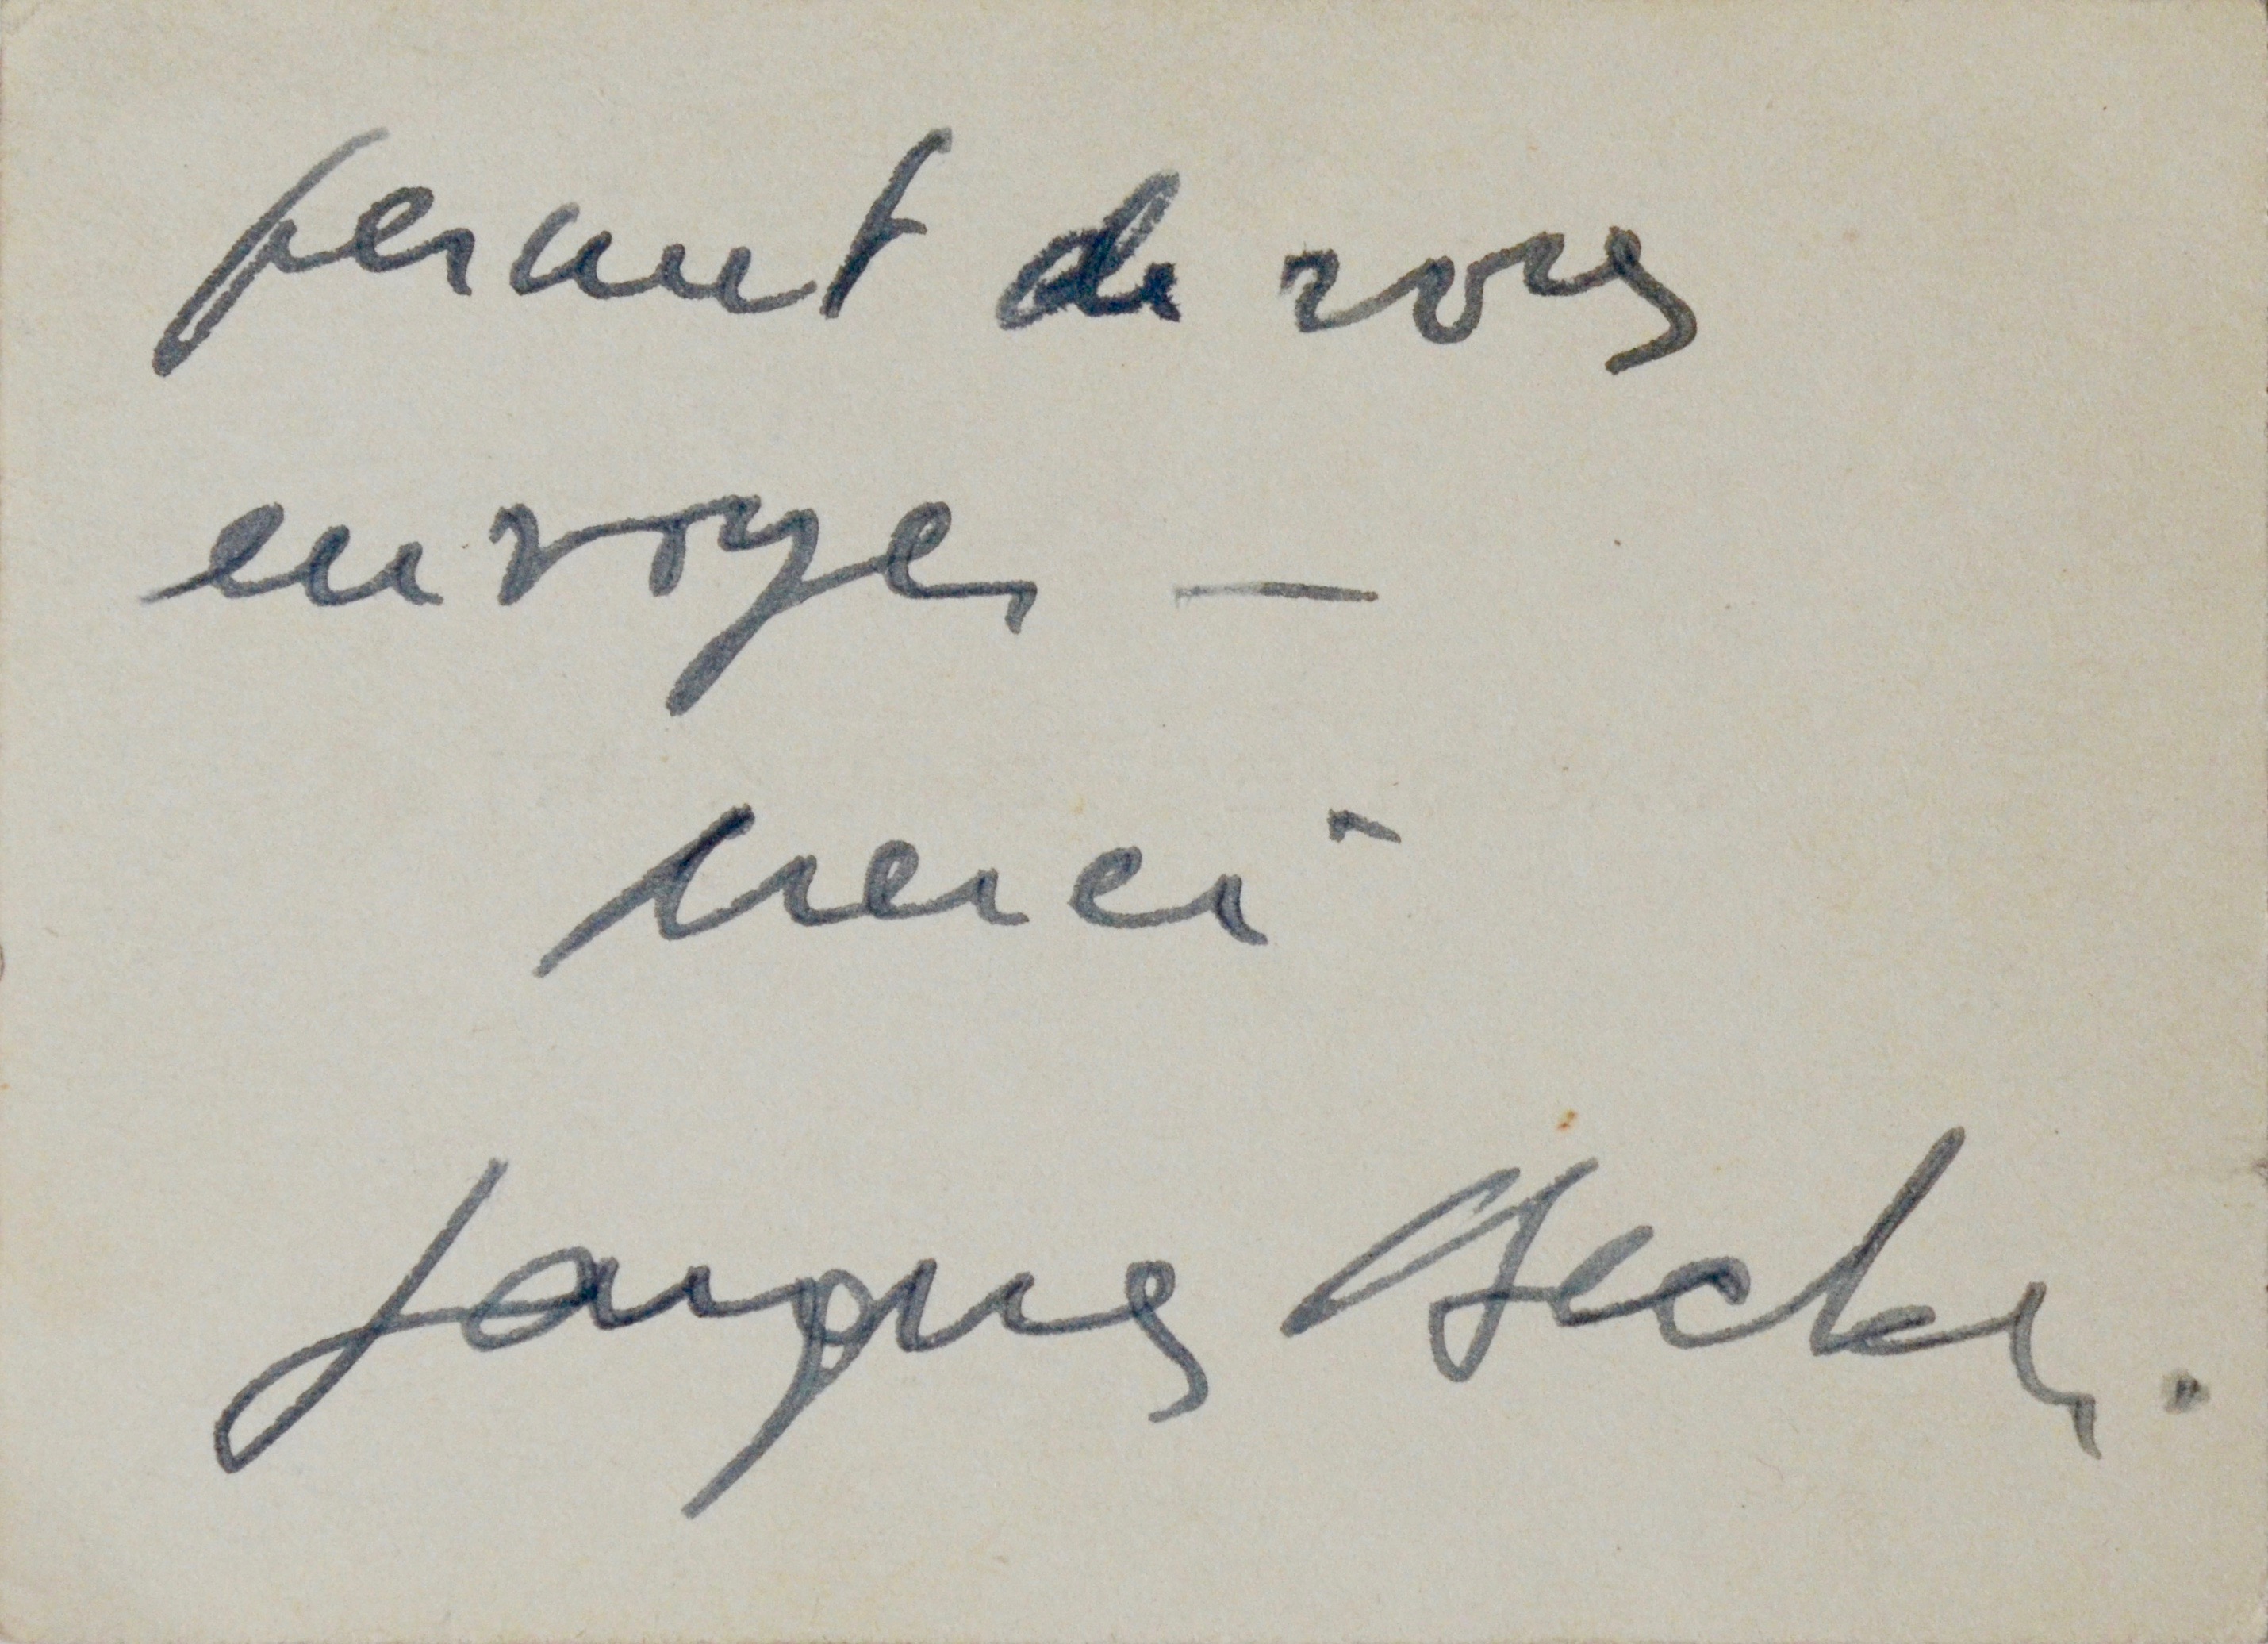 permet de vous
envoyer —
merci
Jacques Becker.